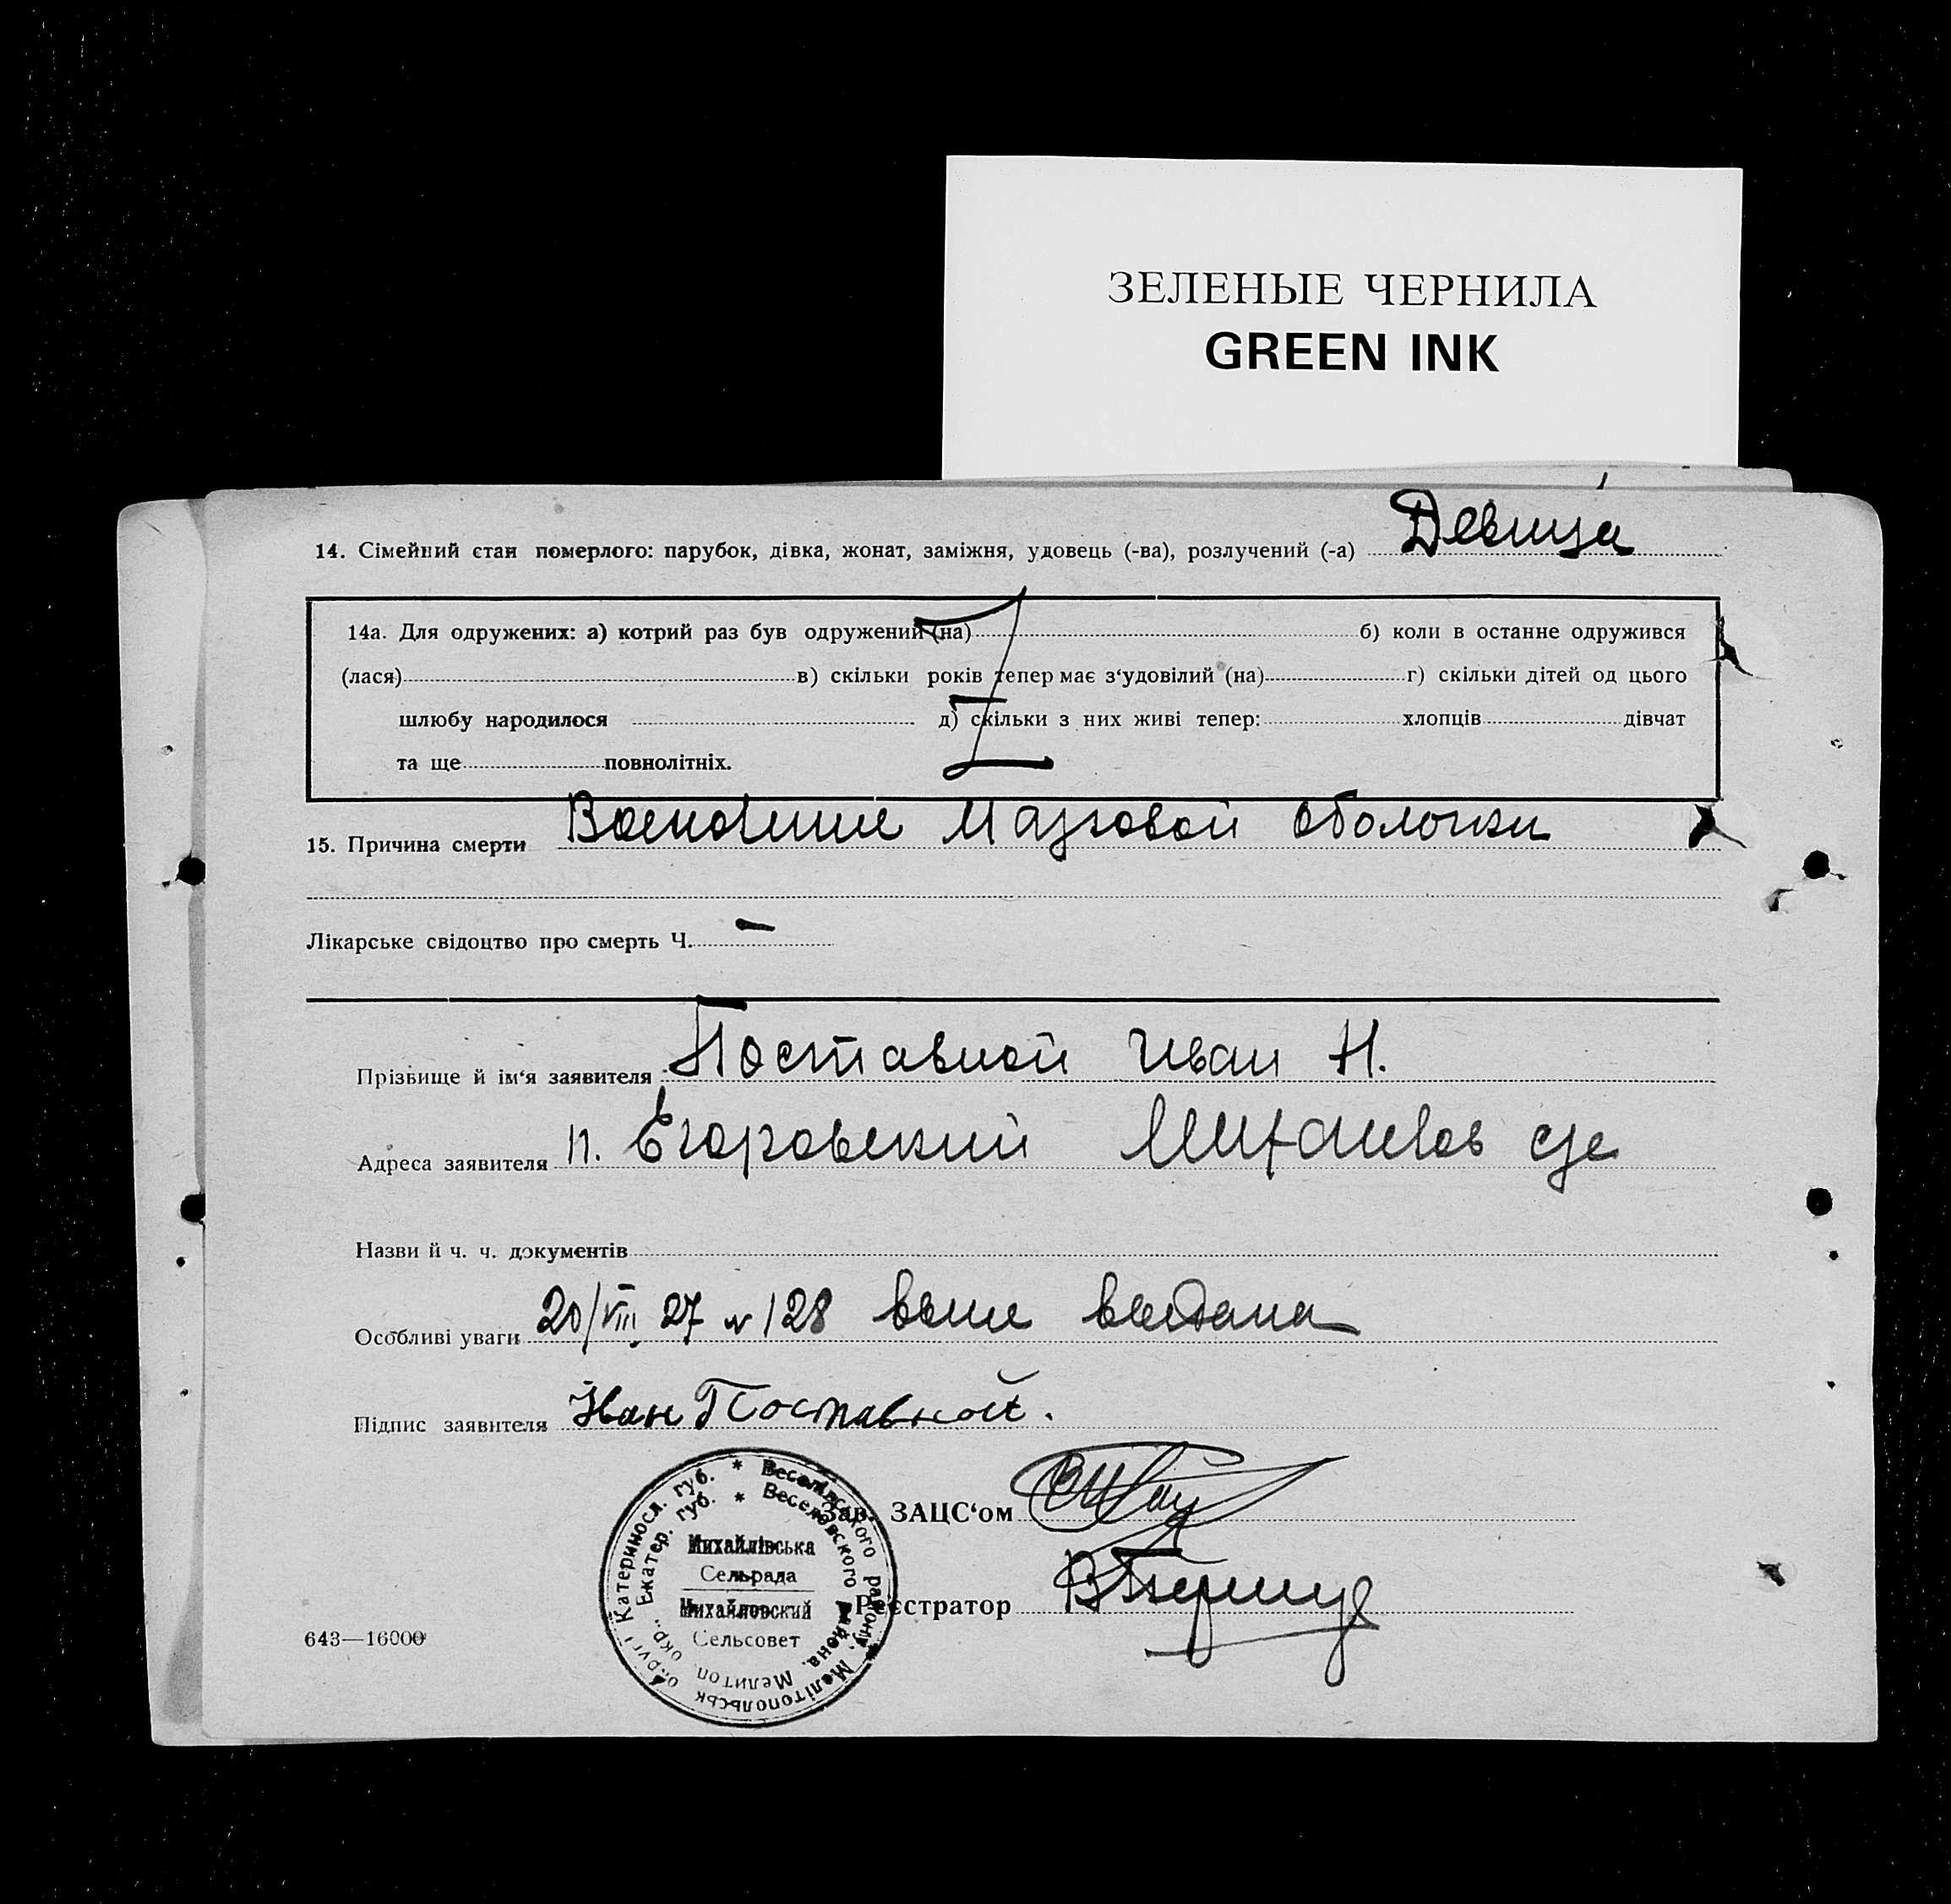 ЗЕЛЕНЫЕ ЧЕРНИЛА
GREEN INK
14. Сімейний стан померлого: парубок, дівка, жонат, заміжня, удовець (-ва), розлучений (-а) Девица
14а. Для одружених: а) котрий раз був одружений (на) б) коли в останне одружився
(лася) в) скільки років тепер має з‘удовілий (на) г) скільки дітей од цього
шлюбу народилося д) скільки з них живі тепер: хлопців дівчат
та ще повнолітніх.
15. Причина смерти Мазговой оболочки
Лікарське свідоцтво про смерть Ч. –
Прізвище й ім‘я заявителя Поставной Иван Н.
Адреса заявителя п. Егоровский
Назви й ч. ч. документів
Особливі уваги 20/VIII 27 № 128 выдана
Підпис заявителя Иван Поставной.
Зав. ЗАЦС‘ом
Реєстратор
* Веселівського району, Мелітопольськ округі Катериносл. губ.
* Веселовского района, Мелитоп. окр., Екатер. губ.
Михайлівська
Сельрада
Михайловский
Сельсовет
643—16000